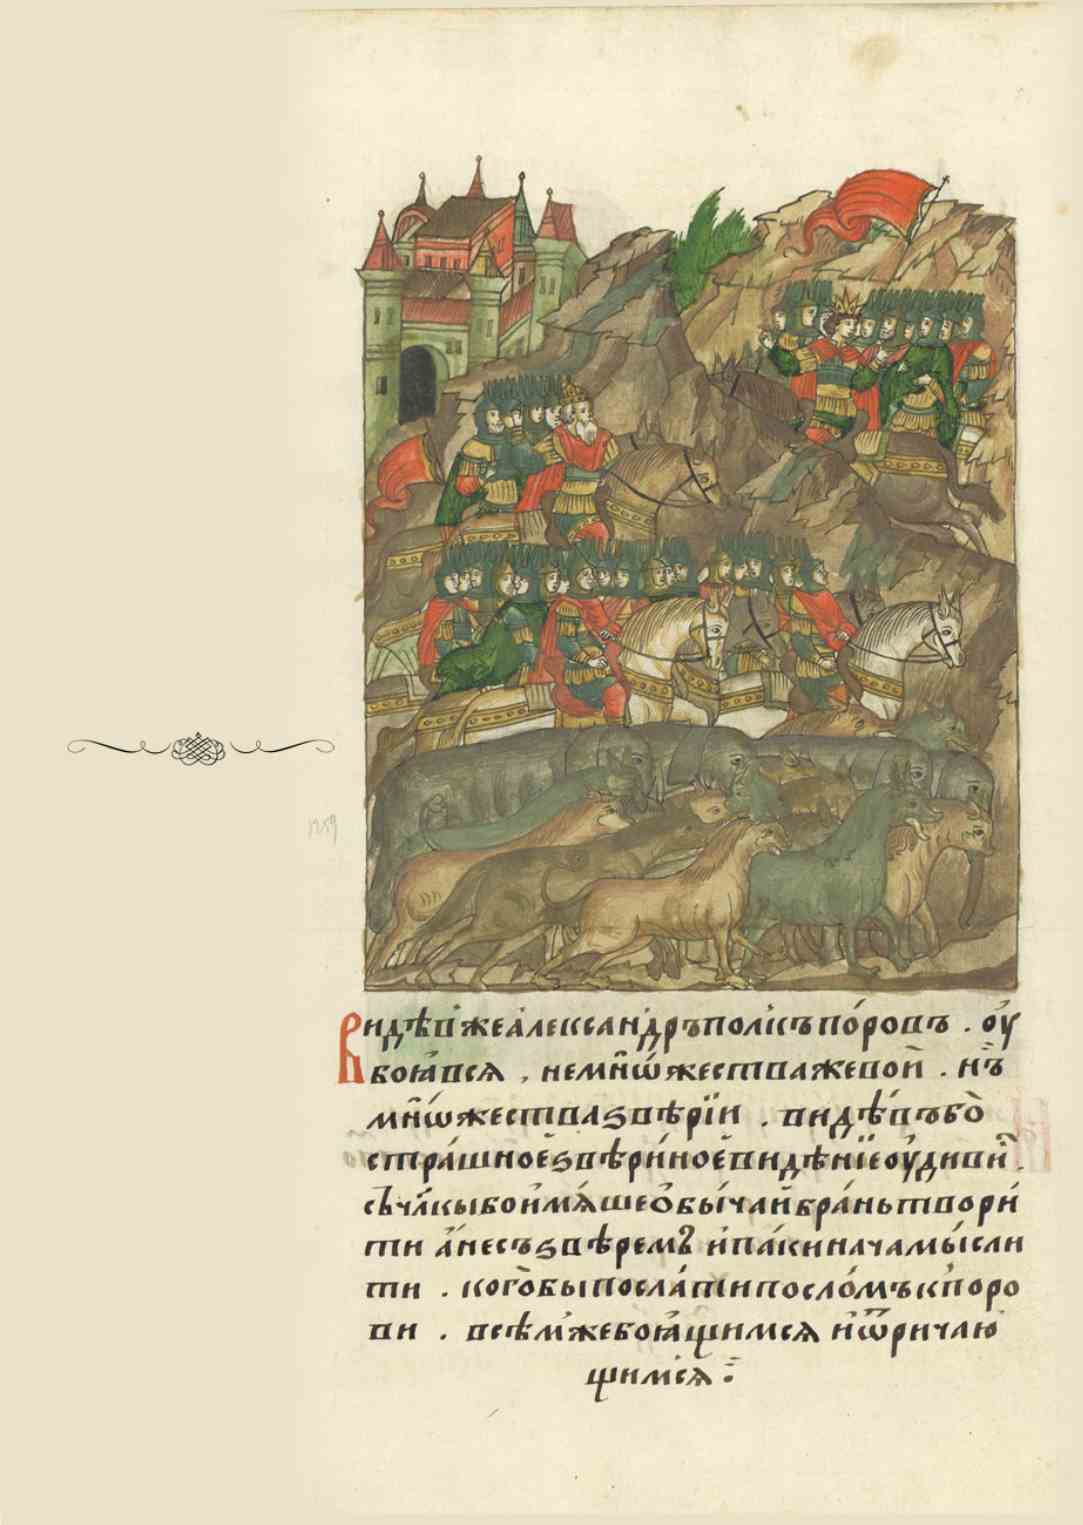 Видѣв же алеѯандръ полкъ поровъ . оу
боꙗвсѧ , не мнѡжества же вои̇ . нъ
мнѡжества ѕвѣрїи . видѣвъ бо
страшное ѕвѣриное видѣнїе оудиви .
съ члкы бо имѧше обычаи брань твори
ти а не съ ѕвѣремъ и паки нача мысли
ти . кого бы послати посломъ к поро
ви . всѣм же боꙗщимсѧ и ѿричаю
щимсѧ :
1259